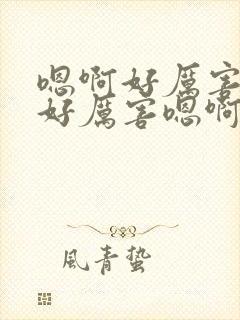 嗯啊好厲害
好厲害嗯啊
風青蟄